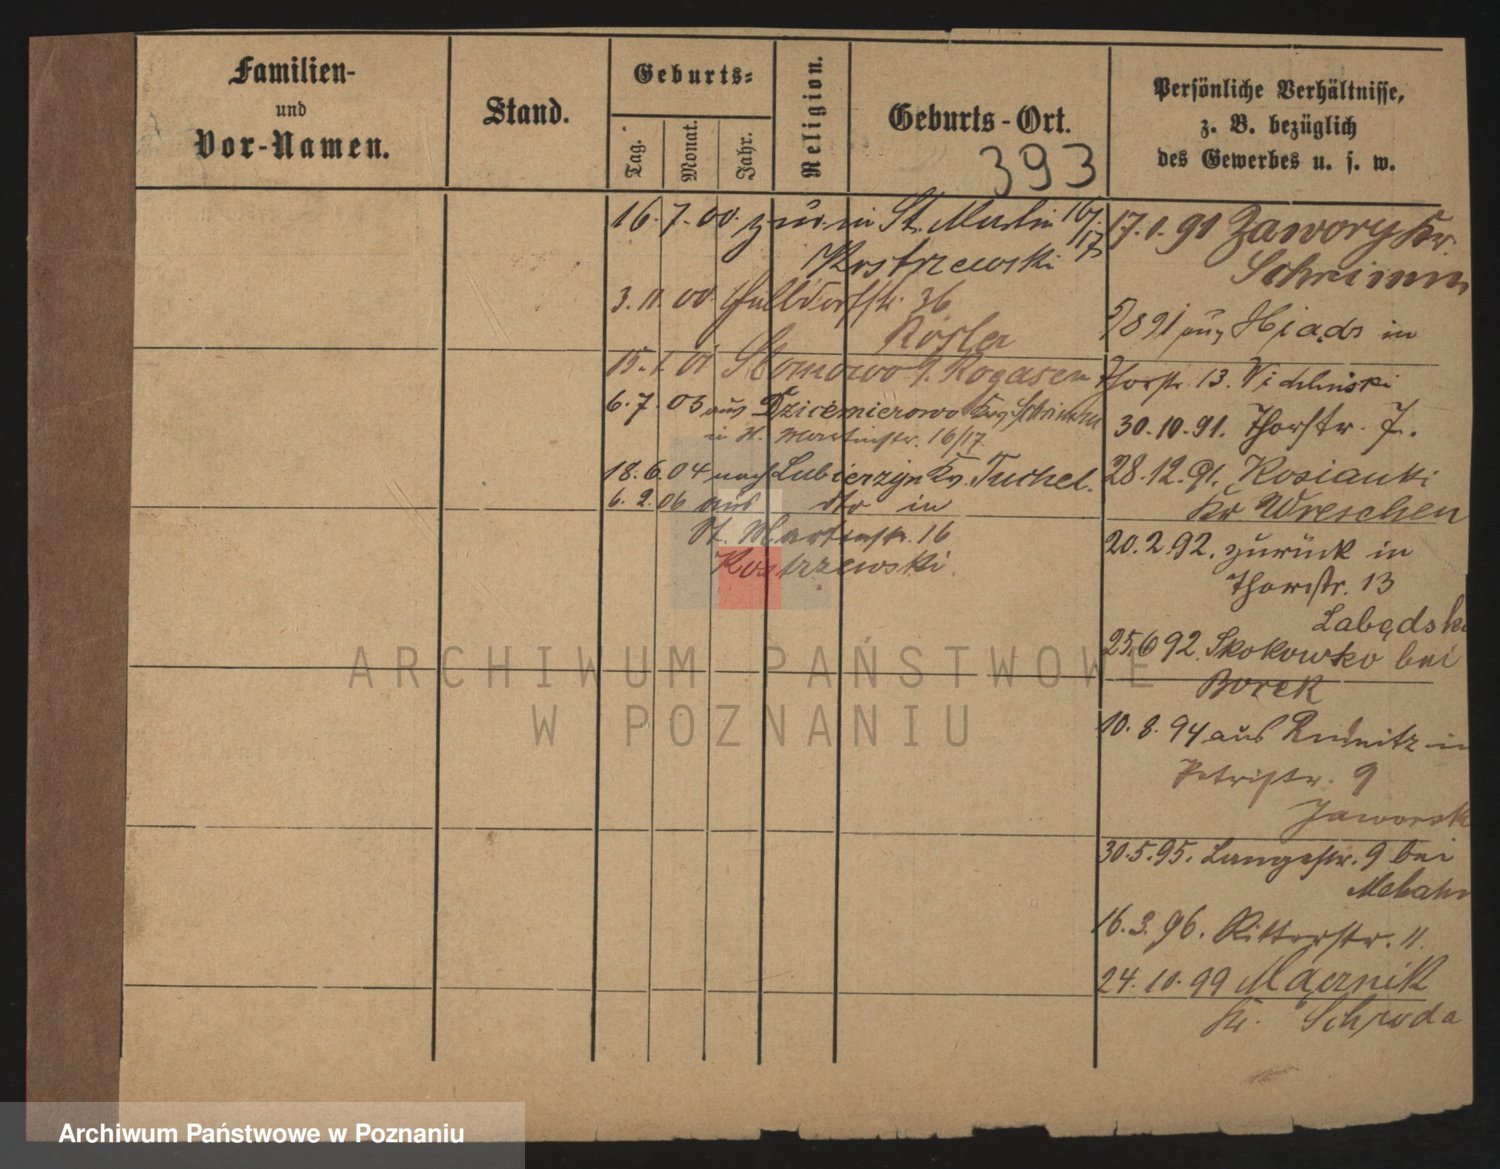 Familien-
und
Vor-Namen.
Stand.
Geburts-
Tag.
Monat.
Jahr.
Religion.
Geburts-Ort.
393
Persönliche Verhältnisse,
z. B. bezüglich
des Gewerbes u. s. w.
16. 7. 00. zur. in St. Martin 16/
17
3. 11. 00
36
Rösler
15. 1. 01 Slomowo Rogasen
6. 7. 03 aus Dzicemierowo Kr. Schrimm
in St. Martinstr. 16/17
18. 6. 04 nach Lubierzyn Kr. Tuchel.
6. 2. 06 aus dto in
St. Martinstr. 16
Kostrzewski
17. 1. 91 Zawory Kr.
Schrimm
5/8 91 aus in
Thorstr. 13.
30. 10. 91. Thorstr. 7.
28. 12. 91. Kosianki
Kr. Wreschen
20. 2. 92. zurück in
Thorstr. 13
Labędski
25. 6 92. Skokowko bei
Borek
10. 8. 94 aus in
Petristr. 9
Jaworsk
30. 5. 95. Langestr. 9 bei
16. 3. 96. Ritterstr. 11.
24. 10. 99 Mącznik
Kr. Schroda
ARCHIWUM PAŃSTWOWE
W POZNANIU
Archiwum Państwowe w Poznaniu